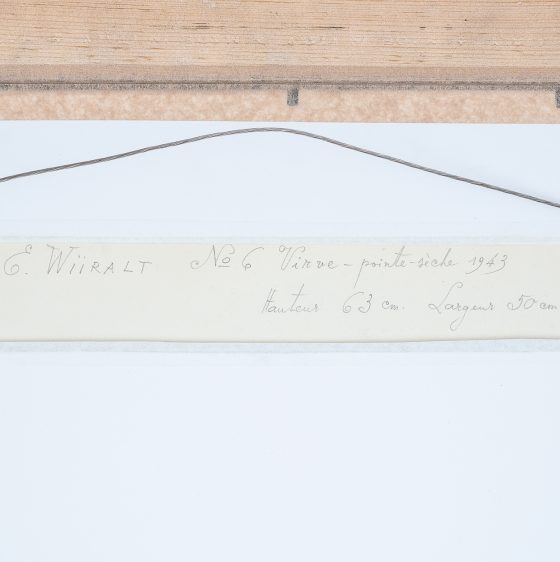 E. WiiRALT No 6 Virve - pointe-sèche 1943
Hauteur 63 cm. Largeur 50 cm